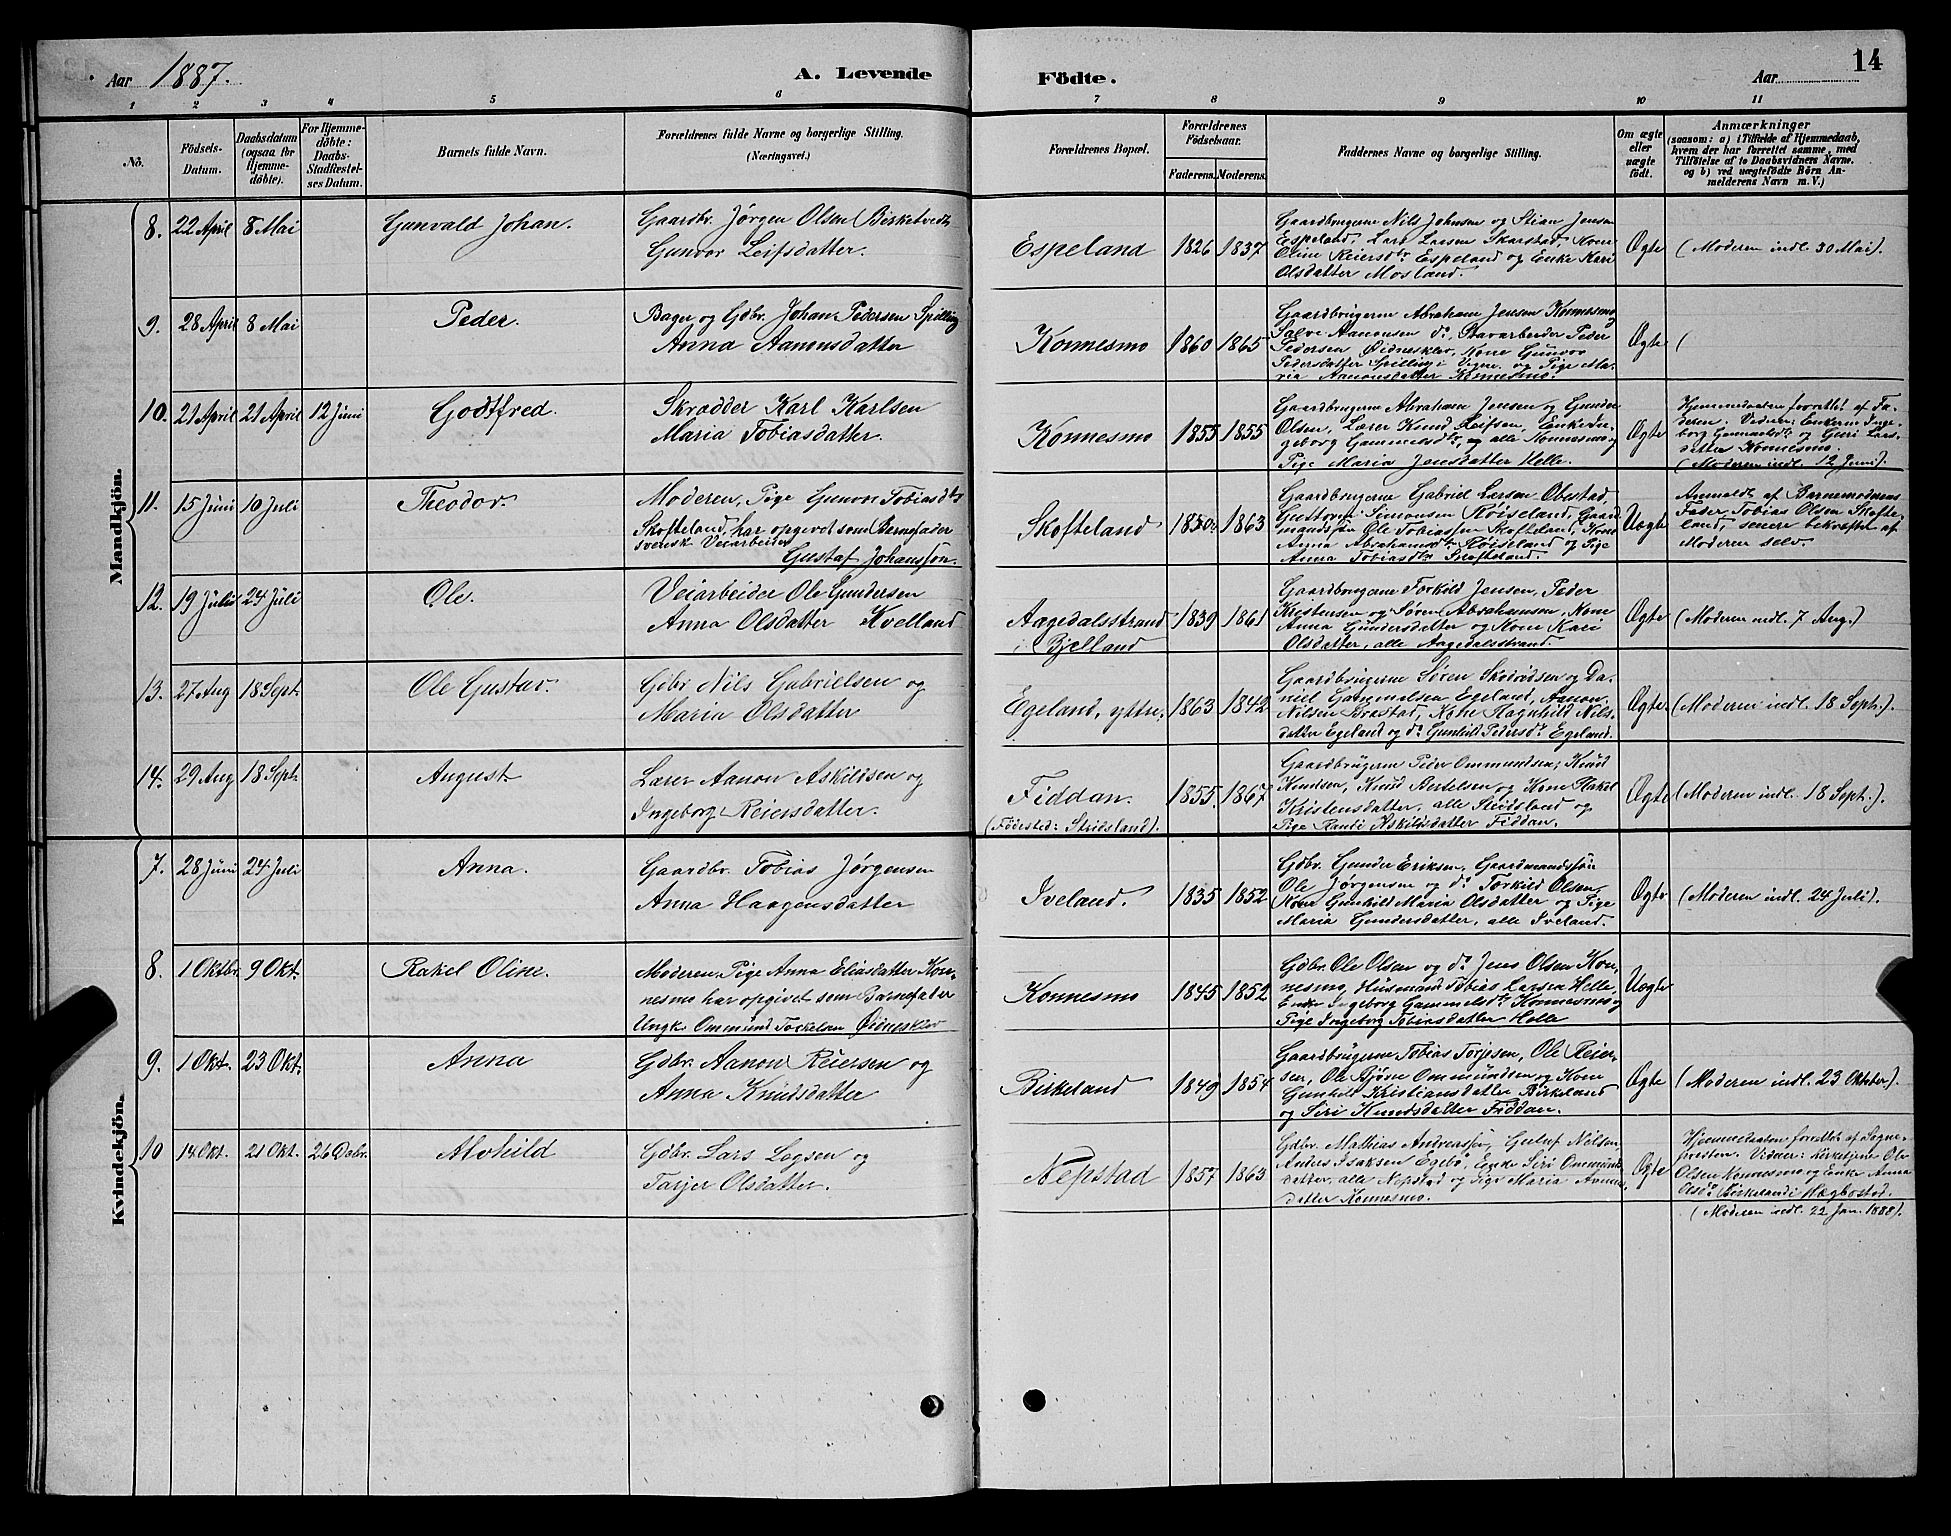 Aar 1887.
A. Levende Födte.
Aar
14
1 2 3 4 5 6 7 8 9 10 11
No.
Födsels-
Datum.
Daabsdatum
(ogsaa for
Hjemme-
döbte).
For Hjemme-
döbte:
Daabs-
Stadfæstel-
ses Datum.
Barnets fulde Navn.
Forældrenes fulde Navne og borgerlige Stilling.
(Næringsvei.)
Forældrenes Bopæl.
Forældrenes
Födselsaar.
Faderens. Moderens.
Faddernes Navne og borgerlige Stilling.
Om ægte
eller
uægte
födt.
Anmærkninger
(saasom: a) i Tilfælde af Hjemmedaab,
hvem der har forrettet samme, med
Tilföielse af to Daabsvidners Navne.
og b) ved uægtefödte Börn An-
melderens Navn m. V.)
Mandkjön.
8. 22 April 8 Mai
Gunvald Johan.
Gaardbr. Jørgen Olsen Birketvedt
Gunvor Leifsdatter.
Espeland 1826 1837
Gaardbrugerne Nils Johnsen og Stian Jensen
Espeland, Lars Larsen Skarstad, Kone
Oline Reiersdtr Espeland og Enke Kari
Olsdatter Mosland.
Ægte (Moderen indl. 30 Mai).
9. 28 April 8 Mai
Peder.
Bager og Gdbr. Johan Pedersen Spilling
Anna Aanonsdatter
Konnesmo 1860 1865
Gaardbrugerne Abraham Jensen Konnesmo,
Salve Aanonsen do, Peder
Pedersen Øidnesklev, Kone Gunvor
Pedersdatter Spilling i Vigne og Pige Ma-
ria Aanonsdatter Konnesmo.
Ægte (
10. 21 April 21 April 12 Juni
Godtfred.
Skrædder Karl Karlsen
Maria Tobiasdatter.
Konnesmo 1855 1855
Gaardbrugerne Abraham Jensen og Gunder
Olsen, Lærer Knud Leifsen, Enke In-
geborg Gammelsdtr, og alle Konnesmo og
Pige Maria Jensdatter Helle.
Ægte
Hjemmedaaben forrettet af Fa-
deren. Vidner: Enkerne Inge-
borg Gammelsdtr og Guri Lars-
datter Konnesmo.
(Moderen indl. 12 Juni).
11. 15 Juni 10 Juli
Theodor.
Moderen, Pige Gunvor Tobiasdtr
Skofteland, har opgivet som Barnefader
svensk Veiarbeider
Gustaf Johansson.
Skofteland 1850 1863
Gaardbrugerne Gabriel Larsen Obestad,
Guttorm Simonsen Røiseland, Gaard-
mandssøn Ole Tobiassen Skofteland, Kone
Anna Abrahamsdtr Røiseland og Pige
Anna Tobiasdtr Skofteland.
Uægte
Anmeldt af Barnemoderens
Fader Tobias Olsen Skofte-
land, senere bekræftet af
Moderen selv.
12. 19 Juli 24 Juli
Ole.
Veiarbeider Ole Gundersen
Anna Olsdatter Kvelland
Aagedalsstrand
i Bjelland
1839 1861
Gaardbrugerne Torkild Jensen, Peder
Kristensen og Søren Abrahamsen, Kone
Anna Gundersdatter og Kone Kari
Olsdatter, alle Aagedalsstrand.
Ægte (Moderen indl. 7 Aug.)
13. 27 Aug 18 Sept.
Ole Gustav.
Gdbr Nils Gabrielsen og
Maria Olsdatter
Egeland, yttre, 1863 1842
Gaardbrugerne Søren Skodvedsen og Da-
niel Gammelsen Egeland, Aanon
Nilsen Brastad, Kone Ragnhild Nils-
datter Egeland og do Gunhild Pedersdtr Egeland.
Ægte. (Moderen indl. 18 Sept.).
14. 29 Aug 18 Sept.
August
Lærer Aanon Askildsen og
Ingeborg Reiersdatter.
Fiddan.
(Fødested: Stridsland).
1855. 1867
Gaardbrugerne Peder Ommundsen, Knud
Knudsen, Knud Bertelsen og Kone Rakel
Kristensdatter, alle Stridsland og
Pige Randi Askildsdatter Fiddan.
Ægte (Moderen indl. 18 Sept.).
Kvindekjön.
7. 28 Juni 24 Juli
Anna.
Gaardbr. Tobias Jørgensen
Anna Haagensdatter
Iveland. 1835 1852
Gdbr. Gunder Eriksen, Gaardmandssøn
Ole Jørgensen og do Torkild Olsen,
Kone Gunhild Maria Olsdatter og Pige
Maria Gundersdatter, alle Iveland.
Ægte (Moderen indl. 24 Juli).
8. 1 Oktbr. 9 Okt.
Rakel Oline.
Moderen, Pige Anna Eliasdatter Kon-
nesmo har opgivet som Barnefader
Ungk. Ommund Torkelsen Øidnesklev
Konnesmo 1845 1852
Gdbr. Ole Olsen og do Jens Olsen Kon-
nesmo, Husmand Tobias Larsen Helle,
Enke Ingeborg Gammelsdtr Konnesmo og
Pige Ingeborg Tobiasdatter Helle
Uægte
9. 1 Okt. 23 Okt.
Anna
Gdbr. Aanon Reiersen og
Anna Knudsdatter
Birkeland 1849 1854
Gaardbrugerne Tobias Torjesen, Ole Reier-
sen, Ole Bjørn Ommundsen og Kone
Gunhild Kristiansdatter Birkeland
og Siri Knudsdatter Fiddan.
Ægte (Moderen indl. 23 Oktober).
10 14 Okt. 21 Okt. 26 Decbr.
Alvhild
Gdbr. Lars Logsen og
Tarjer Olsdatter.
Nepstad 1857 1863
Gdbr. Mathias Andreassen, Guluf Nilsen,
Anders Isaksen Egebø, Enke Siri Ommunds-
datter, alle Nepstad og Pige Maria Aanons-
datter Konnesmo.
Ægte
Hjemmedaaben forrettet af Sogne-
presten. Vidner: Kirketjener Ole
Olsen Konnesmo og Enke Anna
Olsdtr Birkeland i Hægbostad.
(Moderen indl. 22 Jan. 1888).